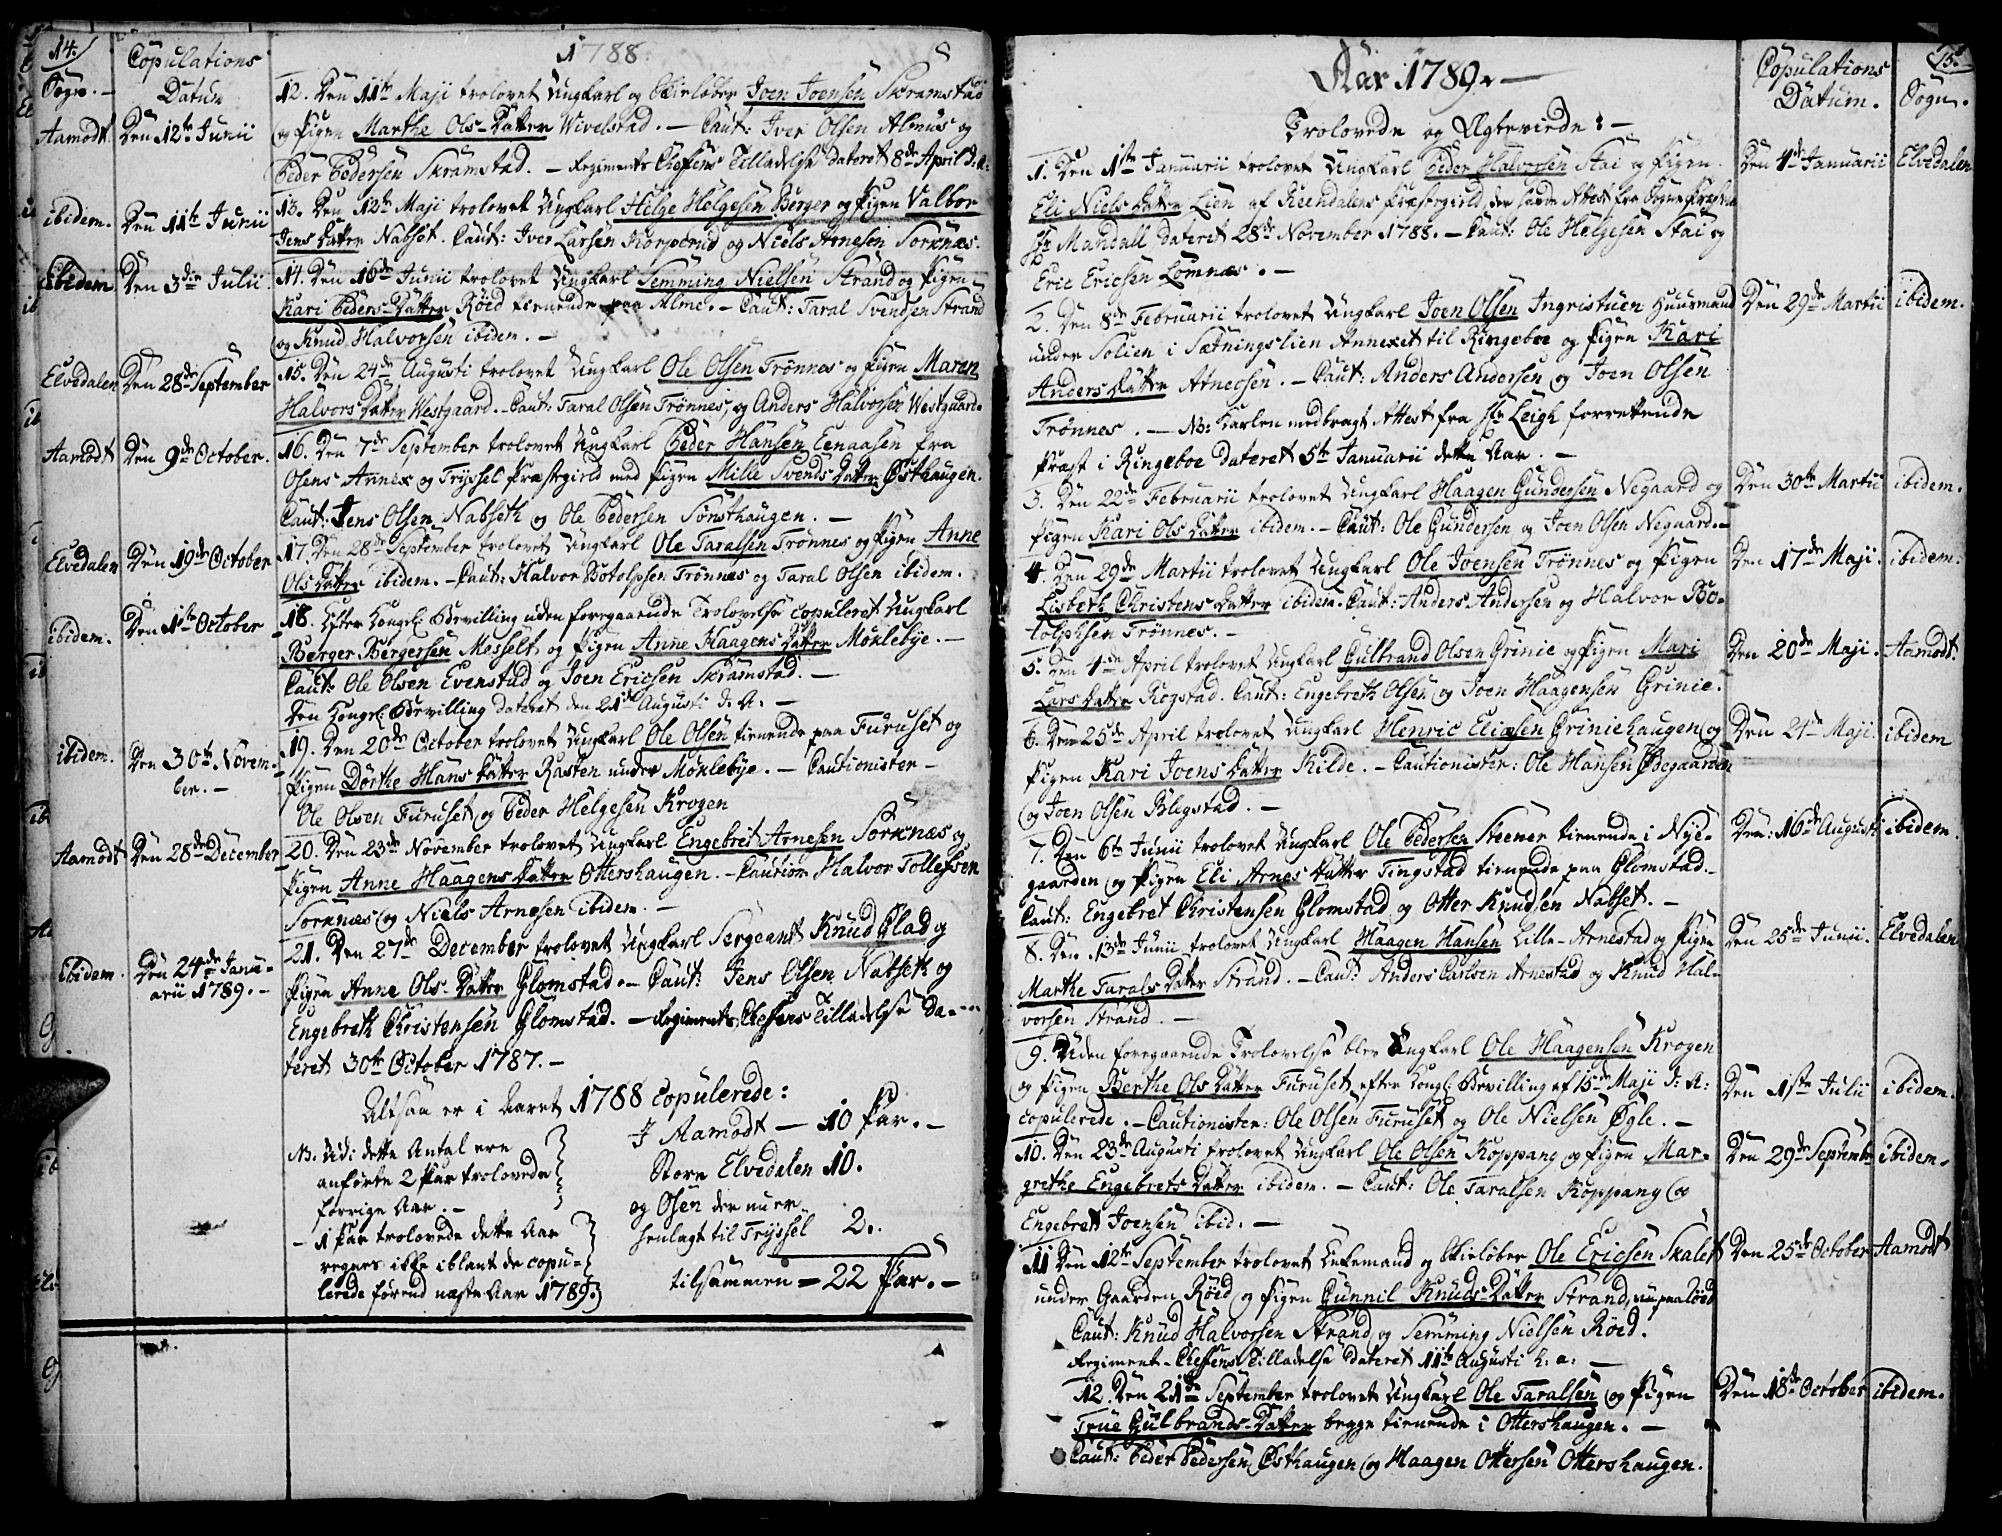 14.
Copulations
Datum
Sogn.
1788.
12. Den 11te Maji trolovet Ungkarl og Skieløber Joen Joensen Skramstad
og Pigen Marthe Ols-Datter Wivelstad. — Caut: Iver Olsen Almus og
Peder Pedersen Skramstad. — Regiments Cheffens Tilladelse dateret 8de April d. A:
Aamodt Den 12te Junii
13. Den 12te Maji trolovet Ungkarl Hilge Helgesen Berger og Pigen Valbor
Jens Datter Nabset. Caut: Iver Larsen Korperud og Niels Arnesen Sorknæs.
ibidem. Den 11te Junii
14. Den 16de Junii trolovet Ungkarl Semming Nielsen Strand og Pigen
Kari Peders-Datter Röed tienende paa Alme. — Caut: Taral Svendsen Strand
og Knud Halvorsen ibidem. —
ibidem Den 3die Julii
15. Den 24de Augusti trolovet Ungkarl Ole Olsen Trönnes og Pigen Maren
Halvors Datter Westgaard. — Caut: Taral Olsen Trönnes, og Anders Halvorsen Westgaard.
Elvedalen Den 28de September
16. Den 7de September trolovet Ungkarl Peder Hansen Eenaasen fra
Osens Annex og Tryssel Præstegield med Pigen Mille Svends Datter Østhaugen.
Caut: Jens Olsen Nabseth og Ole Pedersen Sönsthaugen. —
Aamodt Den 9de October.
17. Den 28de September trolovet Ungkarl Ole Taralsen Trönnes og Pigen Anne
Ols Datter ibidem. — Caut: Halvor Botolphsen Trönnes og Taral Olsen ibidem.
Elvedalen Den 19de October
18. Efter Kongel: Bevilling uden foregaaende Trolovelse copuleret Ungkarl
Berger Bergersen Messelt og Pigen Anne Haagens Datter Möklebye. —
Caut: Ole Olsen Evenstad og Joen Ericsen Skramstad. —
Den Kongel: Bevilling dateret den 21de Augusti d. A: —
ibidem. Den 1ste October
19. Den 20de October trolovet Ungkarl Ole Olsen tienende paa Furuset og
Pigen Dorthe Hans Datter Kasten under Möklebye. — Cautionister —
Ole Olsen Furuset og Peder Helgesen Krogen
ibidem. Den 30te Novem-
ber. —
20. Den 23de November trolovet Ungkarl Engebret Arnesen Sorknæs og
Pigen Anne Haagens Datter Ottershaugen. — Caution Halvor Tollefsen
Sorknæs og Niels Arnesen ibidem. —
Aamodt Den 28de December
21. Den 27de December trolovet Ungkarl Sergeant Knud Glad og
Pigen Anne Ols-Datter Glomstad. — Caut: Jens Olsen Nabseth og
Engebreth Christensen Glomstad. — Regiments Cheffens Tilladelse da-
teret 30te October 1787. —
ibidem. Den 24de Janu-
arii 1789. —
Altsaa er i Aaret 1788 copulerede:
I Aamodt — 10 Par. —
Store Elvedalen 10.
og Osen der nu er
henlagt til Tryssel 2.
tilsammen = 22 Par. —
NB. Udi dette Antal ere
anförte 2 Par trolovede
forrige Aar. —
— 1 Par trolovede dette Aar
regnes ikke iblant de copu-
lerede förend næste Aar 1789.
15.
Aar 1789. —
Copulations
Datum.
Sogn.
Trolovede og Ægteviede: —
1. Den 1ste Januarii trolovet Ungkarl Peder Halvorsen Stai og Pigen
Eli Niels Datter Lien af Reendalens Præstegield, der havde Attest fra Sogne Præsten
Hr Mandall dateret 28de November 1788. — Caut: Ole Helgesen Stai og
Eric Ericsen Lömnæs. —
Den 4de Januarii Elvedalen
2. Den 8de Februarii trolovet Ungkarl Joen Olsen Ingristuen Huusmand
under Solien i Sætningslien Annexet til Ringeboe og Pigen Kari
Anders Datter Atneosen. — Caut: Anders Andersen og Joen Olsen
Trönnes. — NB: Karlen medbragt Attest fra Hr Leigh forrettende
Præst i Ringeboe dateret 5te Januarii dette Aar. —
Den 29de Martii ibidem.
3. Den 22de Februarii trolovet Ungkarl Haagen Gundersen Negaard og
Pigen Kari Ols Datter ibidem. — Caut: Ole Gundersen og Joen Olsen Negaard. —
Den 30te Martii ibidem.
4. Den 29de Martii trolovet Ungkarl Ole Joensen Trönnes og Pigen
Lisbeth Christens Datter ibidem. Caut: Anders Andersen og Halvor Bo-
tolphsen Trönnes. —
Den 17de Maji. ibidem.
5. Den 4de April trolovet Ungkarl Gulbrand Olsen Grinie og Pigen Mari
Lars Datter Rogstad. Caut: Engebreth Olsen og Joen Haagensen Grinie.
Den 20de Maji. Aamodt.
6. Den 25de April trolovet Ungkarl Henric Eliasen Griniehaugen og
Pigen Kari Joens Datter Kilde. — Cautionister: Ole Hansen Øbegaarden
og Joen Olsen Blegstad. —
Den 21de Maji ibidem
7. Den 6te Junii trolovet Ungkarl Ole Pedersen Steener tienende i Nye-
gaarden og Pigen Eli Arnes Datter Tingstad tienende paa Glomstad. —
Caut: Engebret Christensen Glomstad og Otter Knudsen Nabset. —
Den: 16de Augusti ibidem
8. Den 13de Junii trolovet Ungkarl Haagen Hansen Lille-Arnestad og Pigen
Marthe Tarals Datter Strand. — Caut: Anders Carlsen Arnestad og Knud Hal-
vorsen Strand. —
Den 25de Junii. Elvedalen
9. Uden foregaaende Trolovelse blev Ungkarl Ole Haagensen Krogen
og Pigen Berthe Ols Datter Furuset efter Kongl: Bevilling af 15de Maji d: A:
copulerede. — Cautionister: Ole Olsen Furuset og Ole Nielsen Øgle. —
Den 1ste Julii ibidem.
10. Den 23de Augusti trolovet Ungkarl Ole Olsen Koppang og Pigen Mar-
grethe Engebrets Datter ibidem. — Caut: Ole Taralsen Koppang og
Engebrett Joensen ibid. —
Den 29de September ibidem.
11 Den 12te September trolovet Enkemand og Skieløber Ole Ericsen Skalet
under Gaarden Röed og Pigen Gunnil Knuds-Datter Strand, nu paa Röed
Caut: Knud Halvorsen Strand og Semming Nielsen Röed.
Regiment-Cheffens Tilladelse dateret 11te Augusti h: a: —
Den 25de October Aamodt
12. Den 21de September trolovet Ungkarl Ole Taralsen og Pigen
True Gulbrands-Datter begge tienende i Ottershaugen. —
Caut: Peder Pedersen Østhaugen og Haagen Ottersen Ottershaugen.
Den 18de October ibidem.